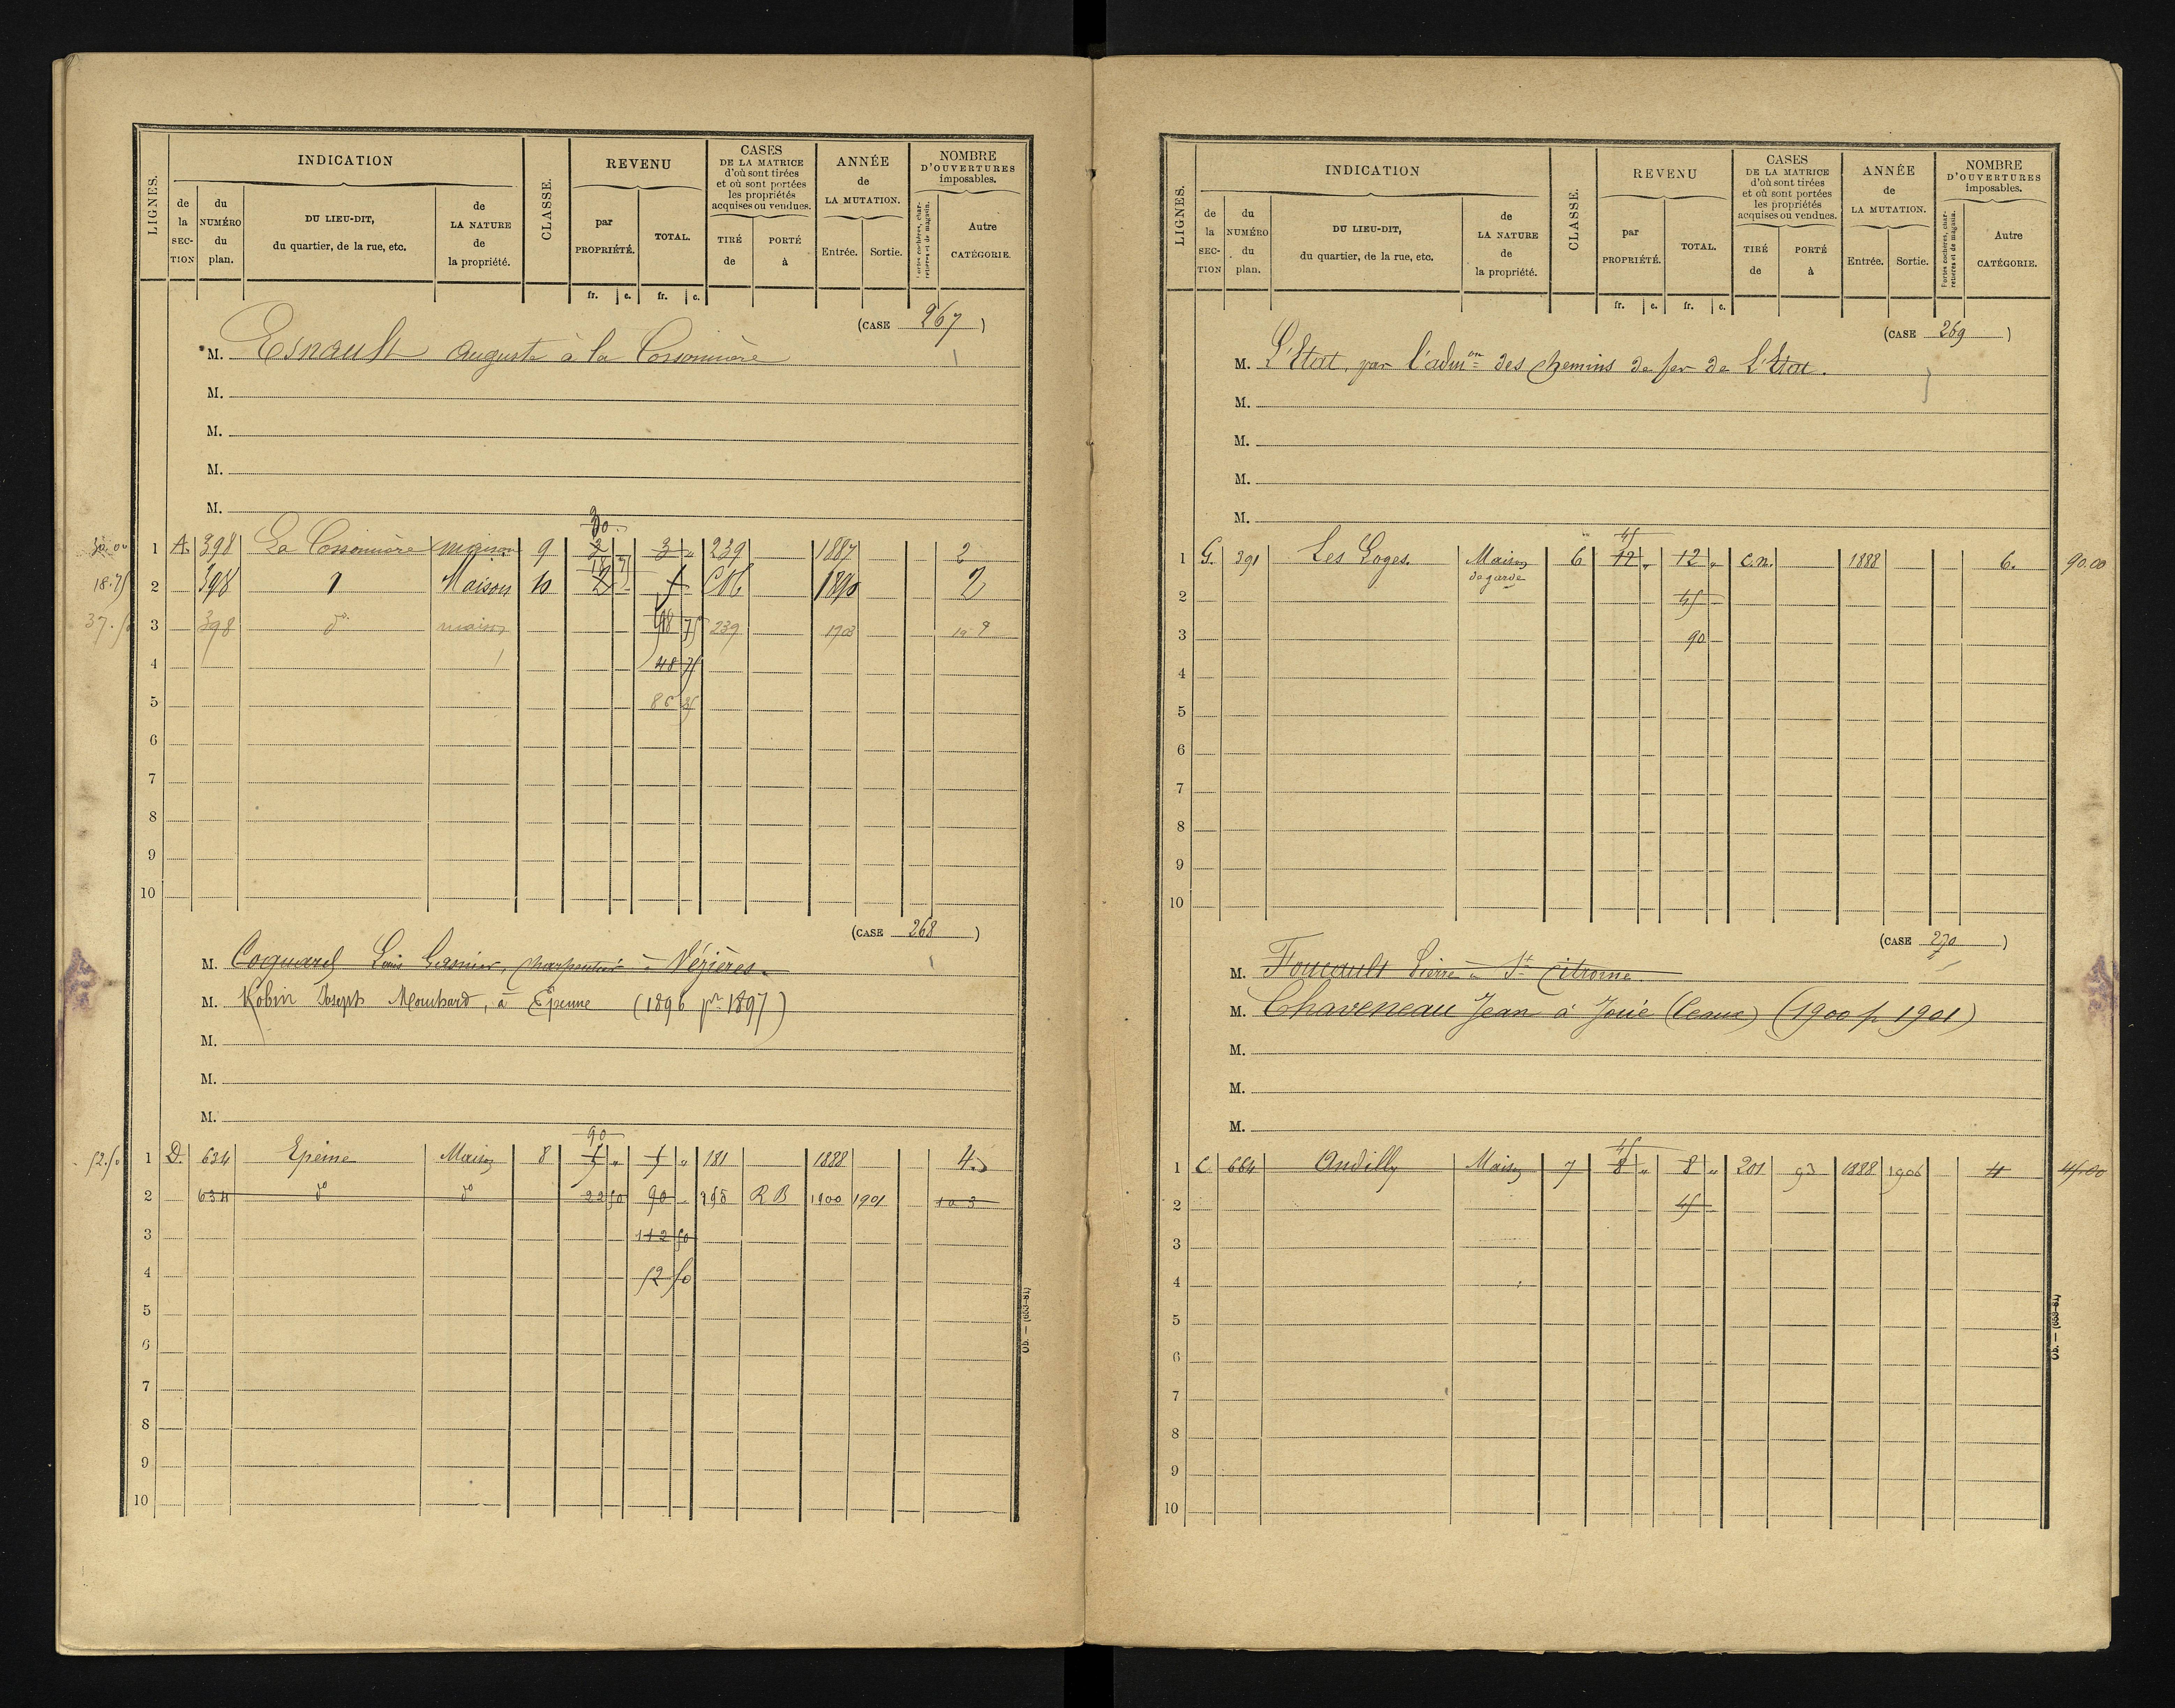 LIGNES.
INDICATION
de la SECTION
du NUMÉRO du plan.
DU LIEU-DIT, du quartier, de la rue, etc.
de LA NATURE de la propriété.
CLASSE.
REVENU
par PROPRIÉTÉ.
TOTAL.
fr. c. fr. c.
CASES DE LA MATRICE d'où sont tirées et où sont portées les propriétés acquises ou vendues.
TIRÉ de
PORTÉ à
ANNÉE de LA MUTATION.
Entrée. Sortie.
NOMBRE D'OUVERTURES imposables.
Portes cochères, charretières et de magasin.
Autre CATÉGORIE.
(CASE 267)
M. Esnault Auguste à la
M.
M.
M.
M.
30
30.00 1 A. 398 La maison 9 3 3 „ 239 1887 2
18.75 2 398 Maison 10 1890 2
3 398 d° maison 98 75 239 1903
4 48 75
5
6
7
8
9
10
(CASE 268)
M. Louis charpentier à Vézières.
M. Robin Joseph à Epenne (1896 pr 1897)
M.
M.
M.
90
52.50 1 D. 634 Epeine Maison 8 „ „ 181 1888 4
2 634 d° d° 22 50 90 „ R B 1900 1901
3 112 50
4 52 50
5
6
7
8
9
10
Ob. — (653-81)
LIGNES.
INDICATION
de la SECTION
du NUMÉRO du plan.
DU LIEU-DIT, du quartier, de la rue, etc.
de LA NATURE de la propriété.
CLASSE.
REVENU
par PROPRIÉTÉ.
TOTAL.
fr. c. fr. c.
CASES DE LA MATRICE d'où sont tirées et où sont portées les propriétés acquises ou vendues.
TIRÉ de
PORTÉ à
ANNÉE de LA MUTATION.
Entrée. Sortie.
NOMBRE D'OUVERTURES imposables.
Portes cochères, charretières et de magasin.
Autre CATÉGORIE.
(CASE 269)
M. L'Etat, par l'admon des chemins de fer de L'Etat.
M.
M.
M.
M.
45
1 G. 391 Les Loges. Maison de garde 6 12 „ 12 „ C.N. 1888 6. 90.00
2 45
3 90
4
5
6
7
8
9
10
(CASE 270)
M. Foucault Pierre à St Citroine
M. Chaveneau Jean à Joué (Ceaux) (1900 p 1901)
M.
M.
M.
45
1 C 664 Andilly Maison 7 8 „ 8 „ 201 93 1888 1906 4 45.00
2 45
3
4
5
6
7
8
9
10
Ob. — (653-81)